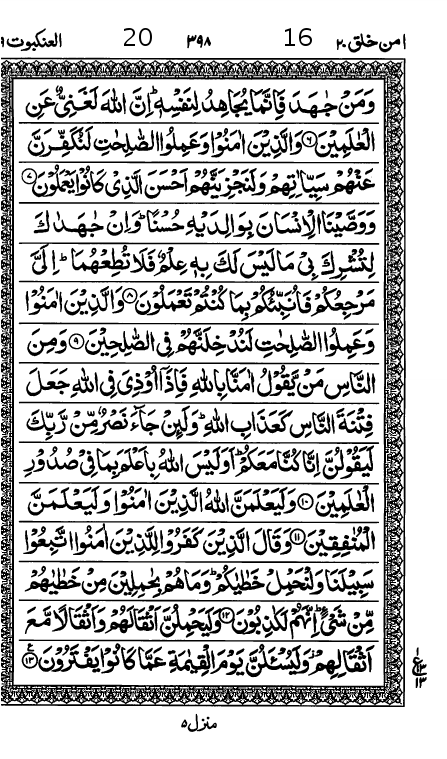 امن خلق ۲۰ 16 ۳۹۸ 20 العنكبوت ۲۹
وَمَنْ جٰهَدَ فَاِنَّمَا يُجَاهِدُ لِنَفْسِهٖ ؕ اِنَّ اللّٰهَ لَغَنِىٌّ عَنِ
الْعٰلَمِيْنَ ﴿۶﴾ وَالَّذِيْنَ اٰمَنُوْا وَعَمِلُوا الصّٰلِحٰتِ لَنُكَفِّرَنَّ
عَنْهُمْ سَيِّاٰتِهِمْ وَلَنَجْزِيَنَّهُمْ اَحْسَنَ الَّذِىْ كَانُوْا يَعْمَلُوْنَ ﴿۷﴾
وَوَصَّيْنَا الْاِنْسَانَ بِوَالِدَيْهِ حُسْنًا ؕ وَاِنْ جٰهَدٰكَ
لِتُشْرِكَ بِىْ مَا لَيْسَ لَكَ بِهٖ عِلْمٌ فَلَا تُطِعْهُمَا ؕ اِلَىَّ
مَرْجِعُكُمْ فَاُنَبِّئُكُمْ بِمَا كُنْتُمْ تَعْمَلُوْنَ ﴿۸﴾ وَالَّذِيْنَ اٰمَنُوْا
وَعَمِلُوا الصّٰلِحٰتِ لَنُدْخِلَنَّهُمْ فِى الصّٰلِحِيْنَ ﴿۹﴾ وَمِنَ
النَّاسِ مَنْ يَّقُوْلُ اٰمَنَّا بِاللّٰهِ فَاِذَاۤ اُوْذِىَ فِى اللّٰهِ جَعَلَ
فِتْنَةَ النَّاسِ كَعَذَابِ اللّٰهِ ؕ وَلَئِنْ جَآءَ نَصْرٌ مِّنْ رَّبِّكَ
لَيَقُوْلُنَّ اِنَّا كُنَّا مَعَكُمْ ؕ اَوَلَيْسَ اللّٰهُ بِاَعْلَمَ بِمَا فِىْ صُدُوْرِ
الْعٰلَمِيْنَ ﴿۱۰﴾ وَلَيَعْلَمَنَّ اللّٰهُ الَّذِيْنَ اٰمَنُوْا وَلَيَعْلَمَنَّ
الْمُنٰفِقِيْنَ ﴿۱۱﴾ وَقَالَ الَّذِيْنَ كَفَرُوْا لِلَّذِيْنَ اٰمَنُوا اتَّبِعُوْا
سَبِيْلَنَا وَلْنَحْمِلْ خَطٰيٰكُمْ ؕ وَمَا هُمْ بِحٰمِلِيْنَ مِنْ خَطٰيٰهُمْ
مِّنْ شَىْءٍ ؕ اِنَّهُمْ لَكٰذِبُوْنَ ﴿۱۲﴾ وَلَيَحْمِلُنَّ اَثْقَالَهُمْ وَاَثْقَالًا مَّعَ
اَثْقَالِهِمْ ؗ وَلَيُسْئَلُنَّ يَوْمَ الْقِيٰمَةِ عَمَّا كَانُوْا يَفْتَرُوْنَ ﴿۱۳﴾
ع ۱ ۱۳ ۱۳
منزل ۵